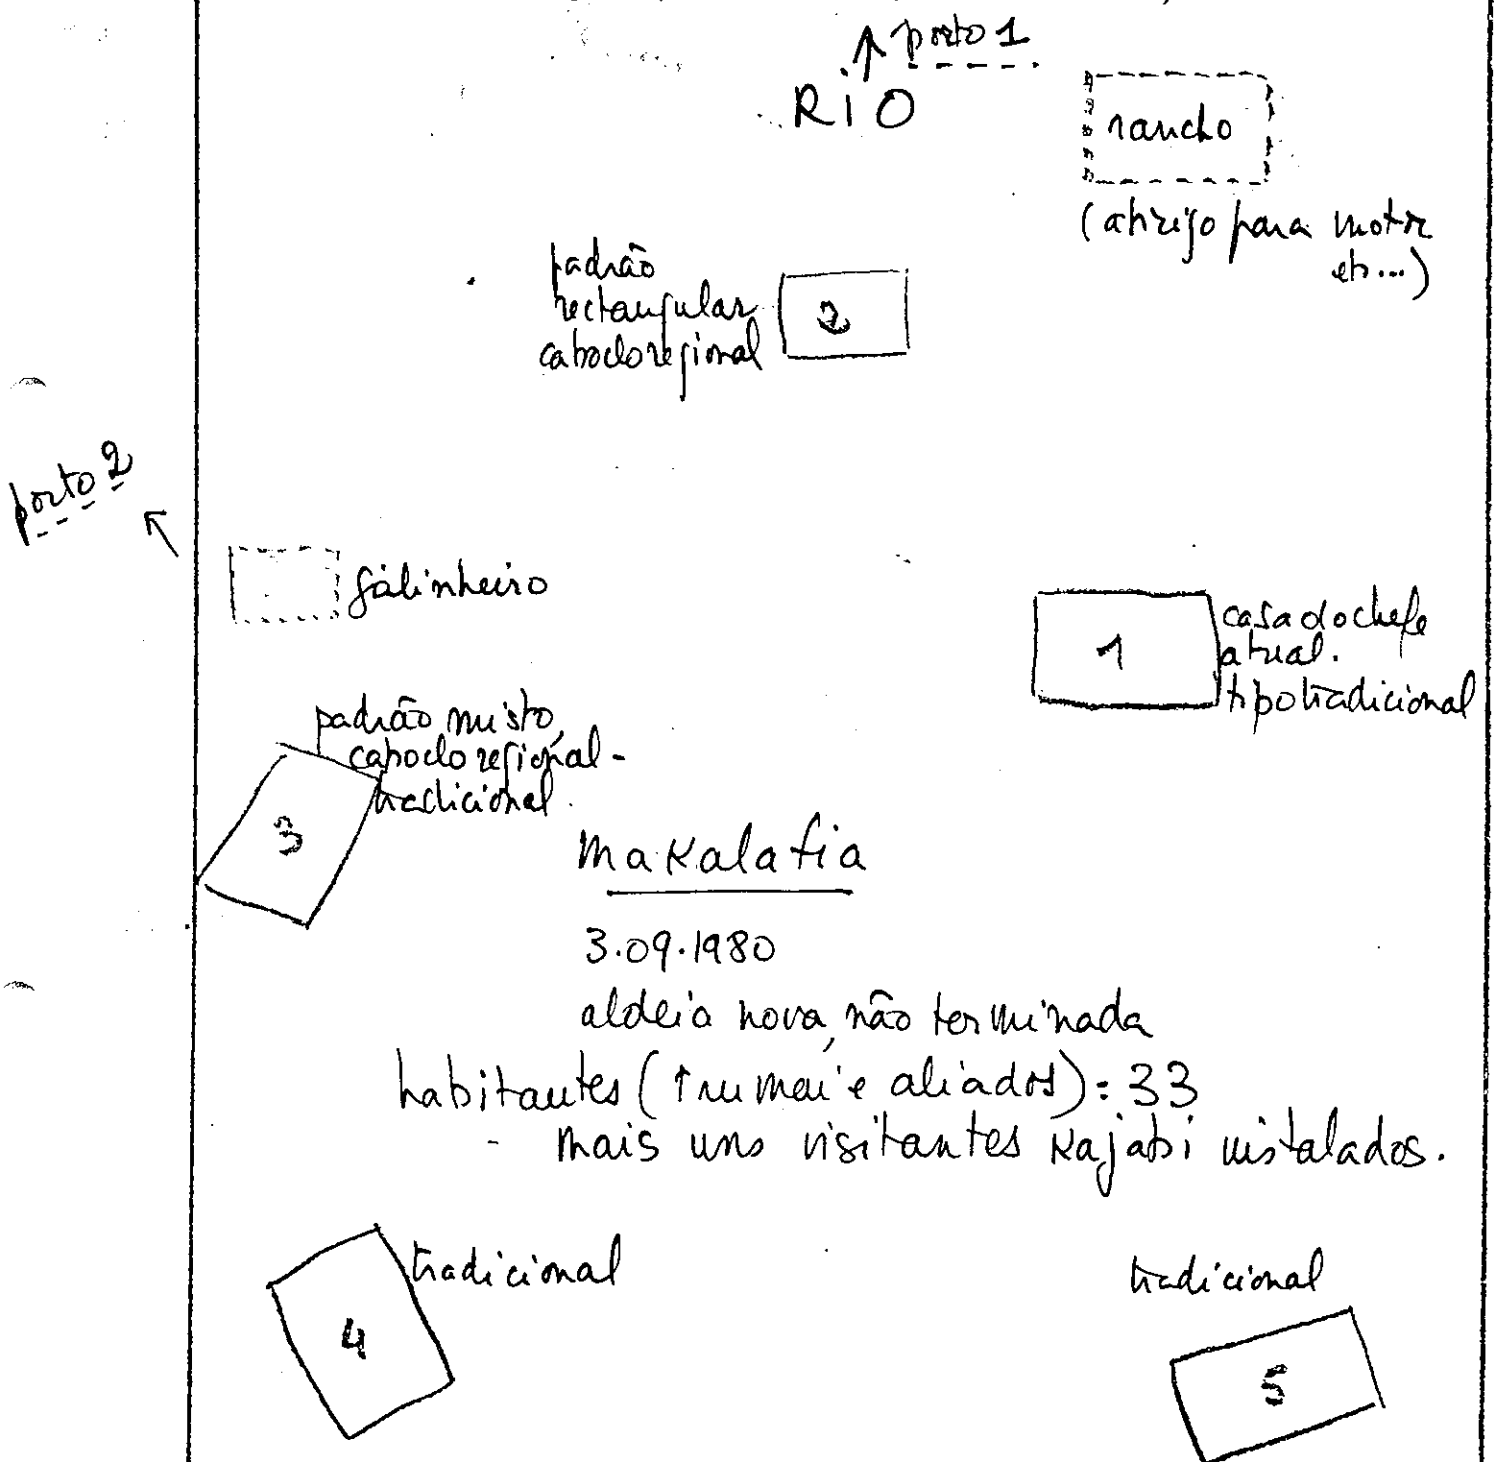 ↑ porto 1
RIO
rancho
(abrigo para motor
etc...)
padrão
rectangular
caboclo regional
2
porto 2
galinheiro
1
casa do chefe
atual.
tipo tradicional
padrão misto,
caboclo regional-
tradicional.
3
Makalafia
3.09.1980
aldeia nova, não terminada
habitantes (Trumai e aliados): 33
mais uns visitantes Kajabi instalados.
tradicional
4
tradicional
5